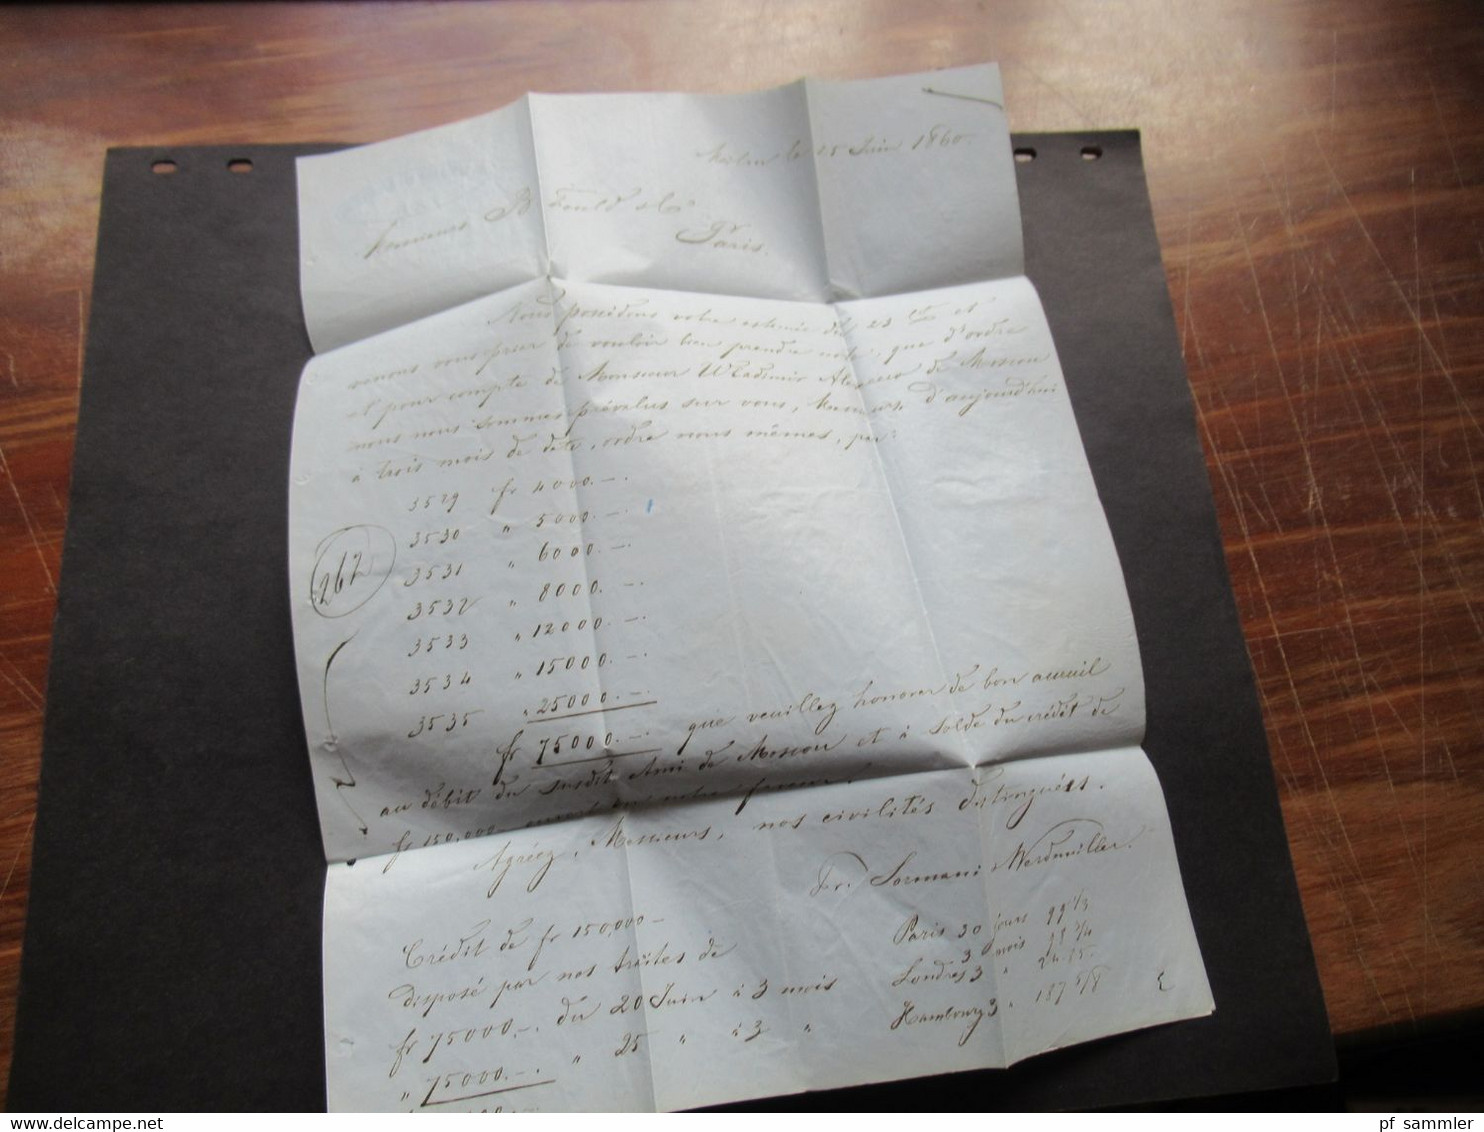 Milan le 25 Juin 1860
Messieurs B. L. Fould & Co
Paris.
Nous possédons votre estimée du 23 ct et
venons vous prier de vouloir bien prendre note, que d'ordre
et pour compte de Monsieur Wladimir Alexeeff de Moscou
nous nous sommes prévalus sur vous, Messieurs, d'aujourd'hui
à trois mois de date, ordre nous mêmes, par:
3529 fr 4000.—.
3530 " 5000.—.
3531 " 6000.—.
3532 " 8000.—.
3533 " 12000.—.
3534 " 15000.—.
3535 " 25000.—.
262
fr 75000.—. que veuillez honorer de bon accueil
au débit du susdit Ami de Moscou et à solde du crédit de
fr 150,000.— ouvert en notre faveur.
Agréez, Messieurs, nos civilités distinguées.
Fr. Sormani Werdmüller.
Crédit de fr 150,000—
disposé par nos traites de
fr 75000.—. du 20 Juin à 3 mois
" 75000.—. " 25 " à 3 "
Paris 30 jours 99 1/3
3 mois 3/4
Londres 3 "
Hambourg 3 " 187 5/8
pf_sammler